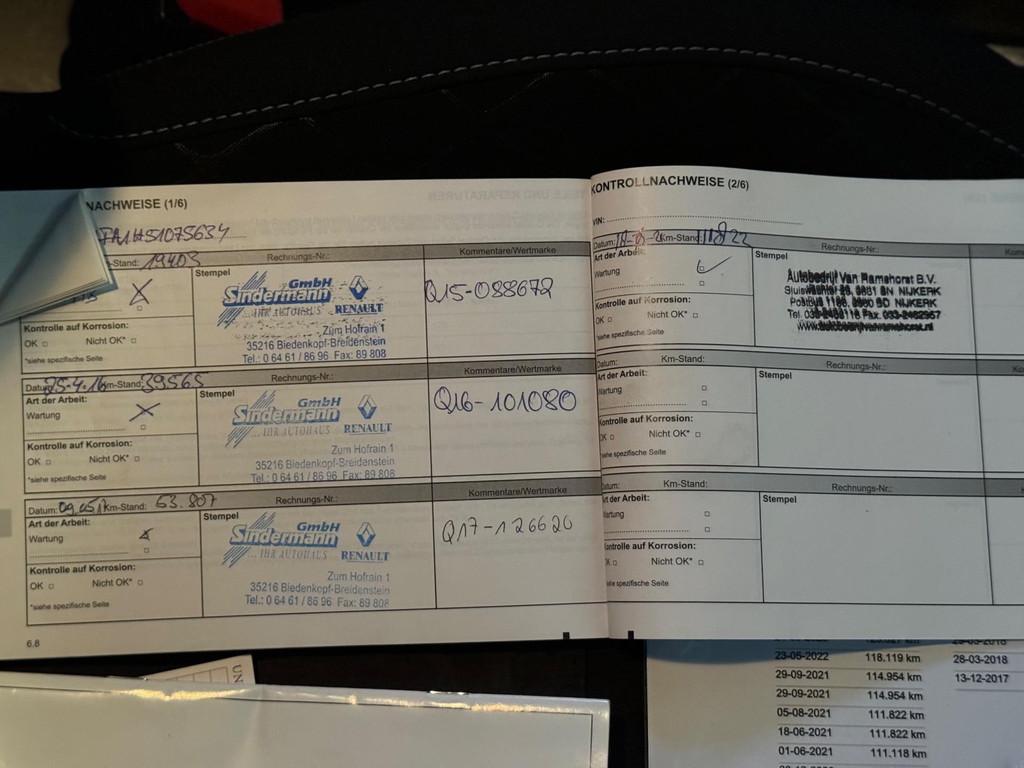 NACHWEISE (1/6)
-Stand: 19403
Rechnungs-Nr.:
Kommentare/Wertmarke
Stempel
GmbH
Sindermann
...IHR AUTOHAUS
RENAULT
Zum Hofrain 1
35216 Biedenkopf-Breidenstein
Tel.: 0 64 61 / 86 96 Fax: 89 808
Q15-088672
Kontrolle auf Korrosion:
OK
Nicht OK*
*siehe spezifische Seite
Datum: 25-4-16 Km-Stand: 39565
Rechnungs-Nr.:
Kommentare/Wertmarke
Art der Arbeit:
Wartung
Stempel
GmbH
Sindermann
...IHR AUTOHAUS
RENAULT
Zum Hofrain 1
35216 Biedenkopf-Breidenstein
Tel.: 0 64 61 / 86 96 Fax: 89 808
Q16-101080
Kontrolle auf Korrosion:
OK
Nicht OK*
*siehe spezifische Seite
Datum: Km-Stand: 63.807
Rechnungs-Nr.:
Kommentare/Wertmarke
Art der Arbeit:
Wartung
Stempel
GmbH
Sindermann
...IHR AUTOHAUS
RENAULT
Zum Hofrain 1
35216 Biedenkopf-Breidenstein
Tel.: 0 64 61 / 86 96 Fax: 89 808
Q17-126620
Kontrolle auf Korrosion:
OK
Nicht OK*
*siehe spezifische Seite
6.8
KONTROLLNACHWEISE (2/6)
VIN:
Datum: Km-Stand: 111822
Rechnungs-Nr.:
Art der Arbeit:
Wartung
Stempel
Autobedrijf Van Ramshorst B.V.
NIJKERK
NIJKERK
Kontrolle auf Korrosion:
OK
Nicht OK*
*siehe spezifische Seite
Datum:
Km-Stand:
Rechnungs-Nr.:
Art der Arbeit:
Wartung
Stempel
Kontrolle auf Korrosion:
OK
Nicht OK*
*siehe spezifische Seite
Datum:
Km-Stand:
Rechnungs-Nr.:
Art der Arbeit:
Wartung
Stempel
Kontrolle auf Korrosion:
Nicht OK*
siehe spezifische Seite
23-05-2022 118.119 km 28-03-2018
29-09-2021 114.954 km 13-12-2017
29-09-2021 114.954 km
05-08-2021 111.822 km
18-06-2021 111.822 km
01-06-2021 111.118 km